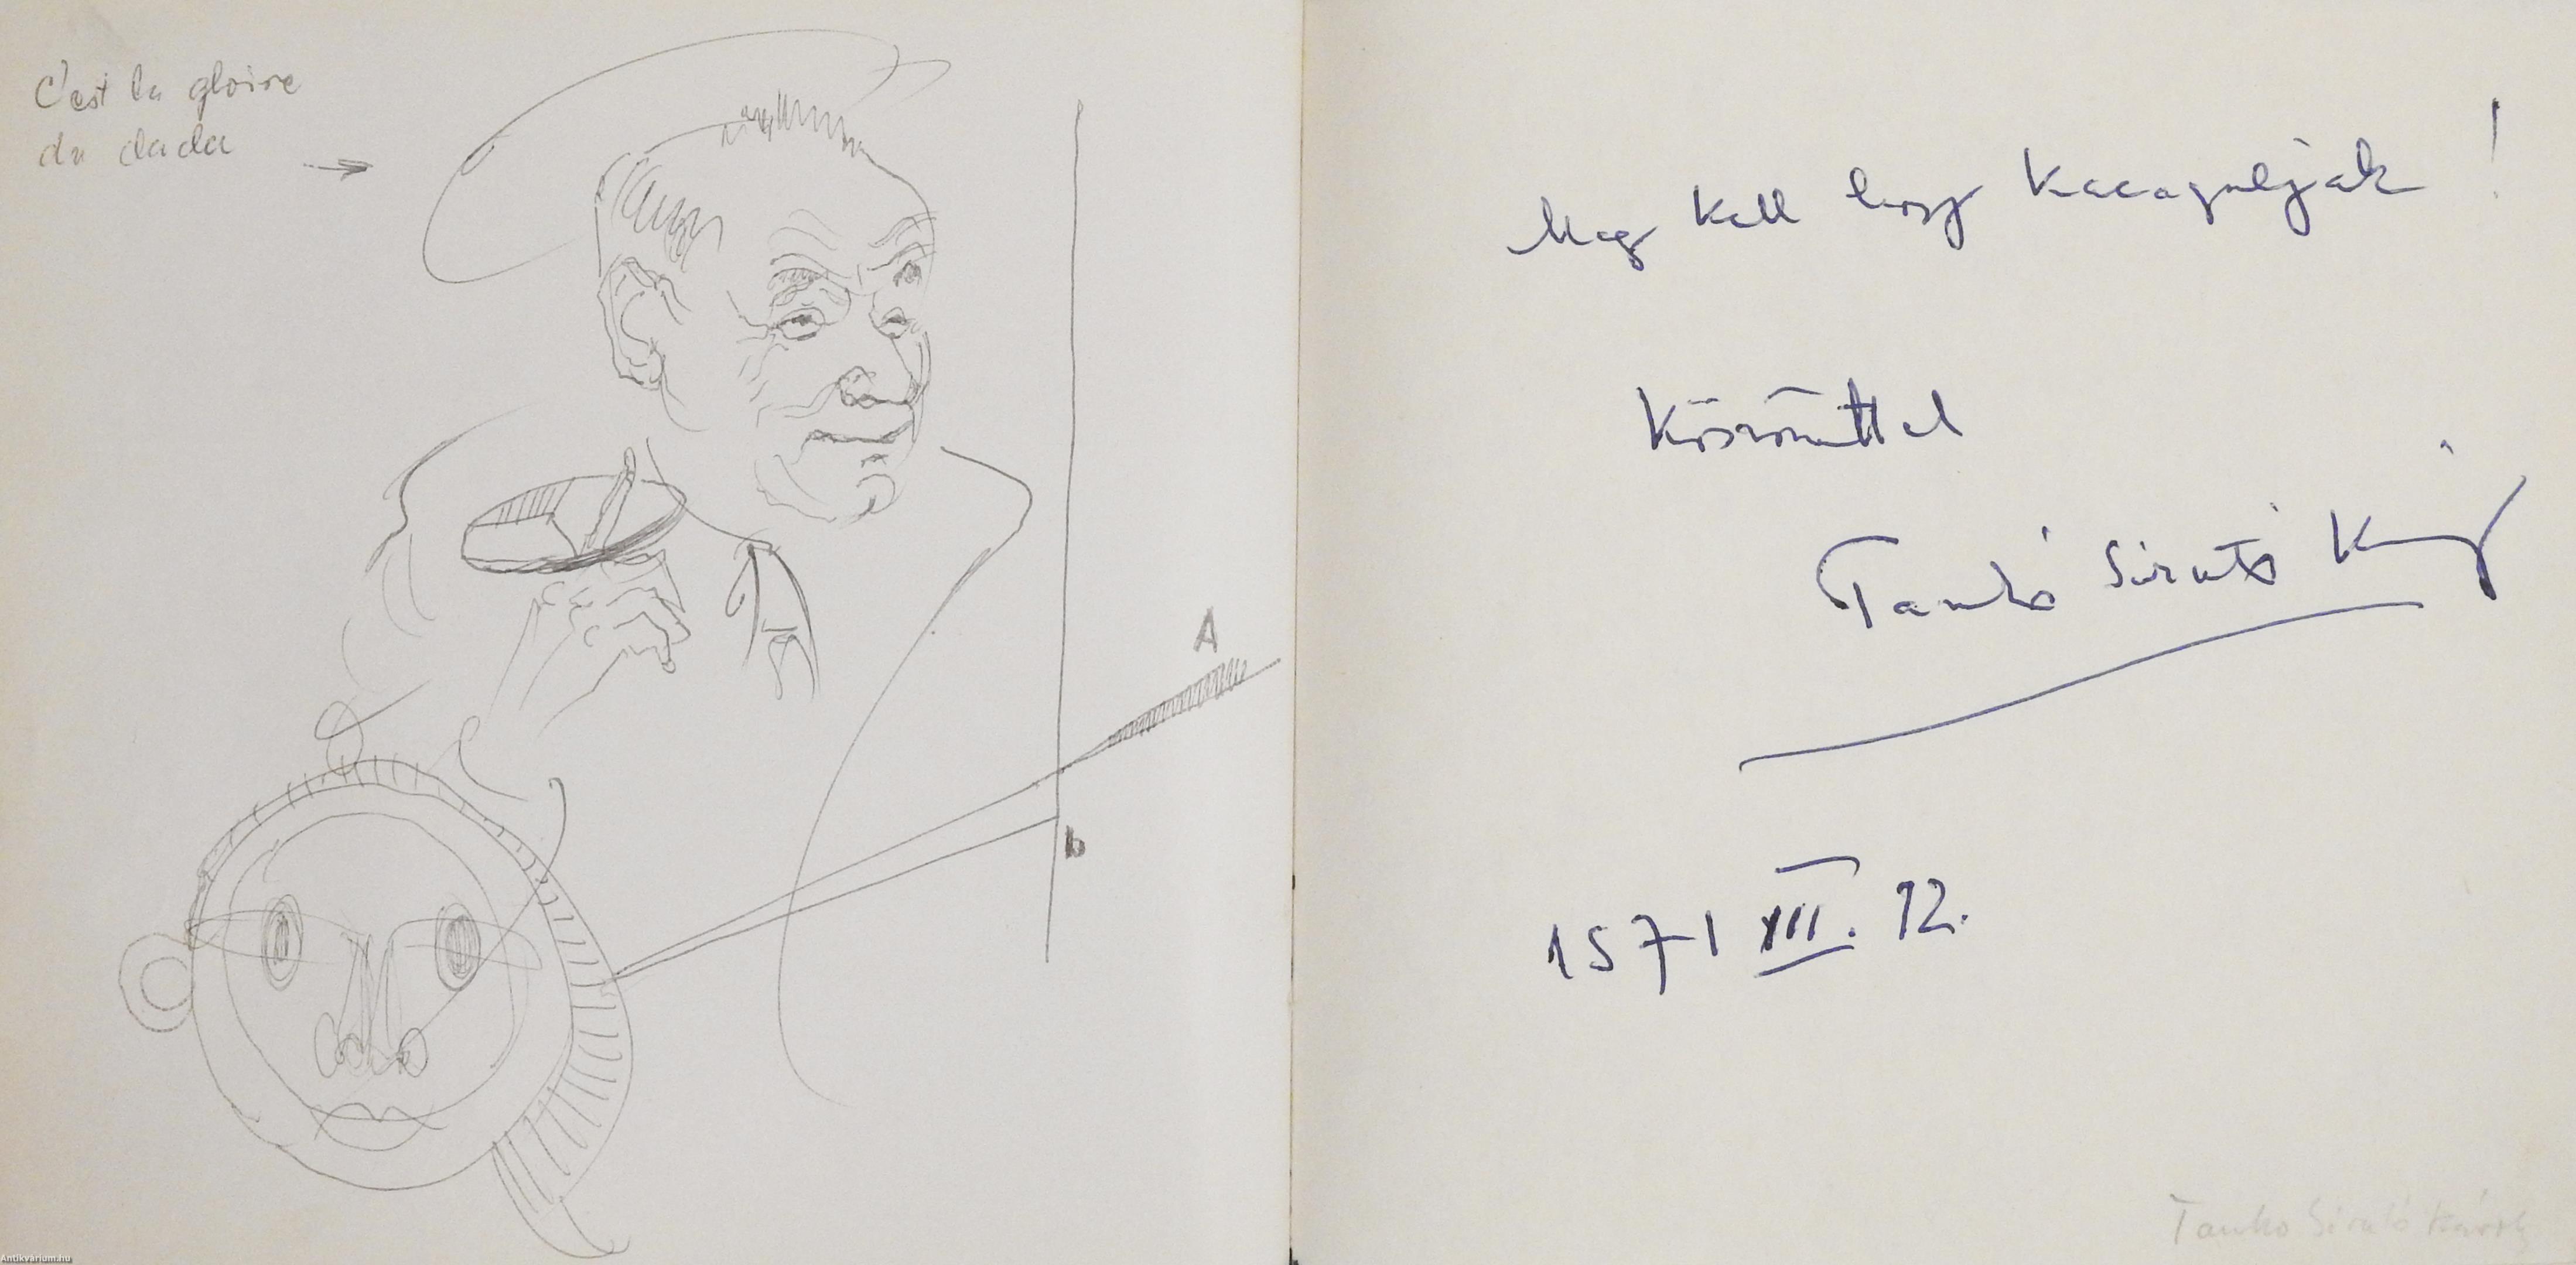 C'est la gloire
du dada
A
b
Meg kell hogy kacagulják!
Köszönettel
Tamkó Sirató Károly
1971 XII. 12.
Tamko Sirató Károly
Antikvarium.hu